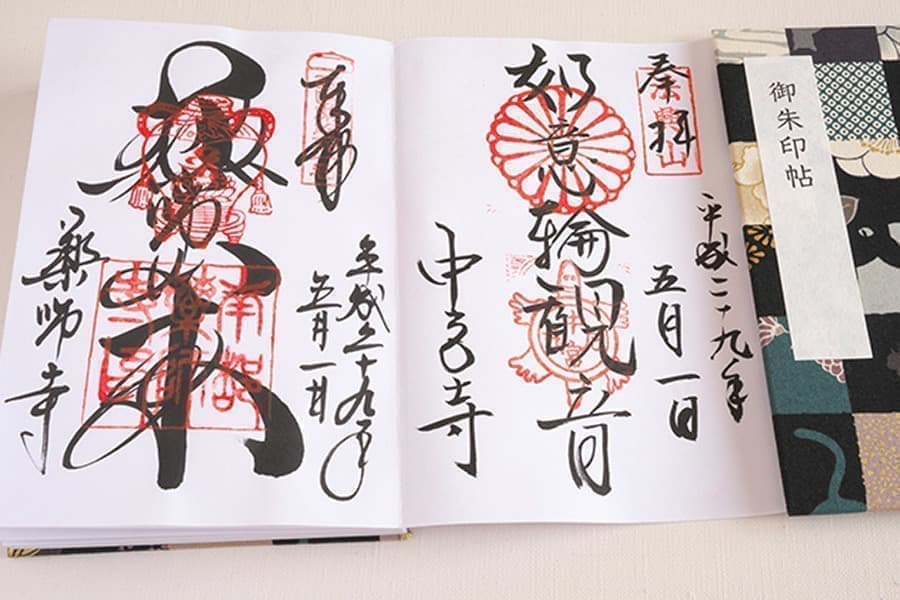 御朱印帖
奉拝
平成二十九年
五月一日
如意輪観音
中宮寺
奉拝
平成二十九年
五月一日
薬師如来
薬師寺